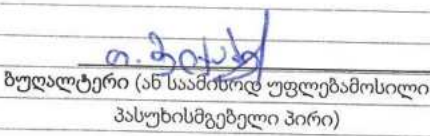 ბუღალტერი (ან საამისოდ უფლებამოსილი
პასუხისმგებელი პირი)